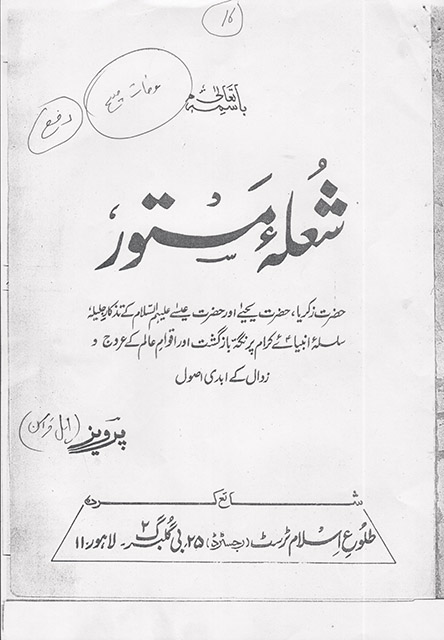 16
باسمہ تعالیٰ
وفات مسیح
شعلۂ مستور
حضرت زکریا، حضرت یحییٰ اور حضرت عیسےٰ علیہم السّلام کے تذکارِ جلیلہ
سلسلۂ انبیائے کرام پر نگہِ بازگشت اور اقوامِ عالم کے عروج و
زوال کے ابدی اصول
پرویز (اہل قرآن)
شائع کردہ
طلوعِ اسلام ٹرسٹ (رجسٹرڈ) ۲۵؍بی گلبرگ ۲ ۔ لاہور: ۱۱